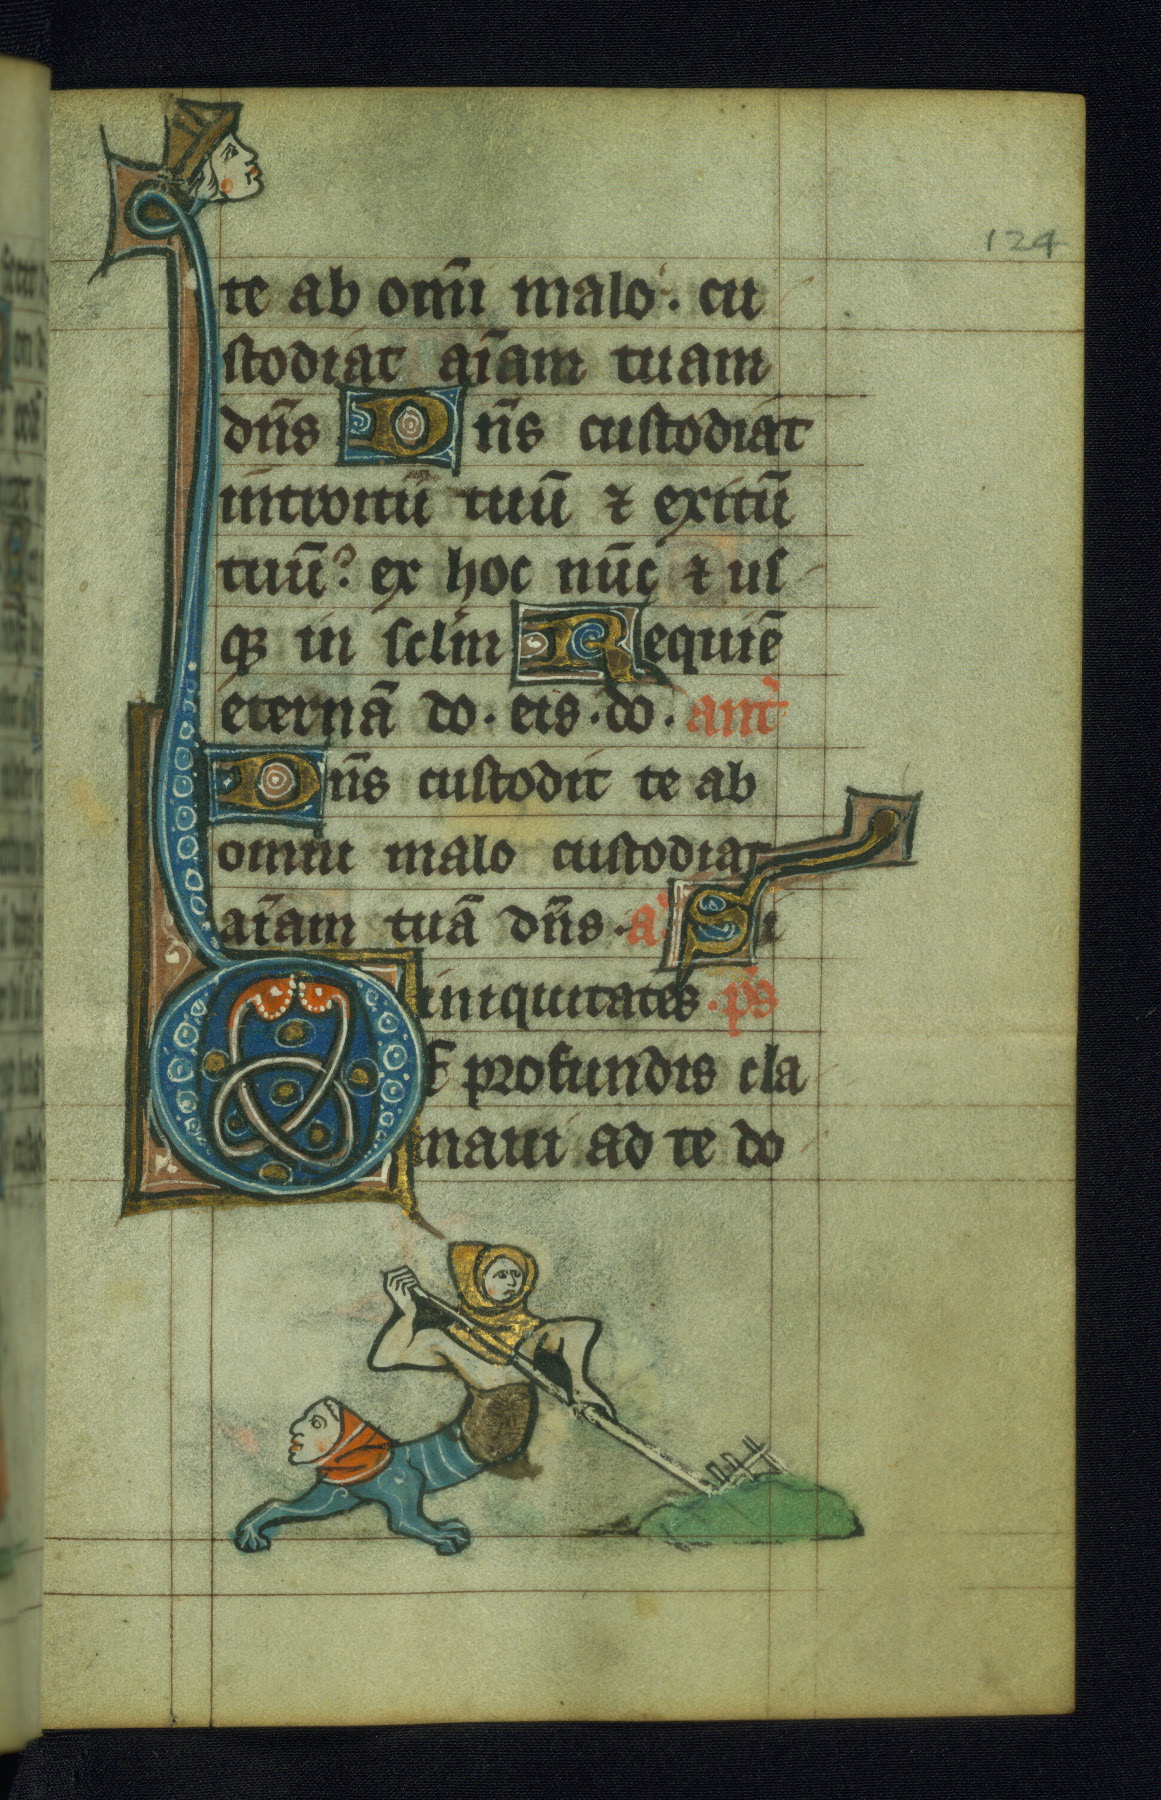 124
te ab om̄i malo. cu
stodiat aīam tuam
dn̄s Dn̄s custodiat
introitū tuū ⁊ exitū
tuū? ex hoc nūc ⁊ us
qꝫ in sclm̄ Requiē
eternā do. eis. do. ant̄
Dn̄s custodit te ab
omni malo custodiat
aīam tuā dn̄s. a. Si
iniquitates. ps̄
DE profundis cla
maui ad te do